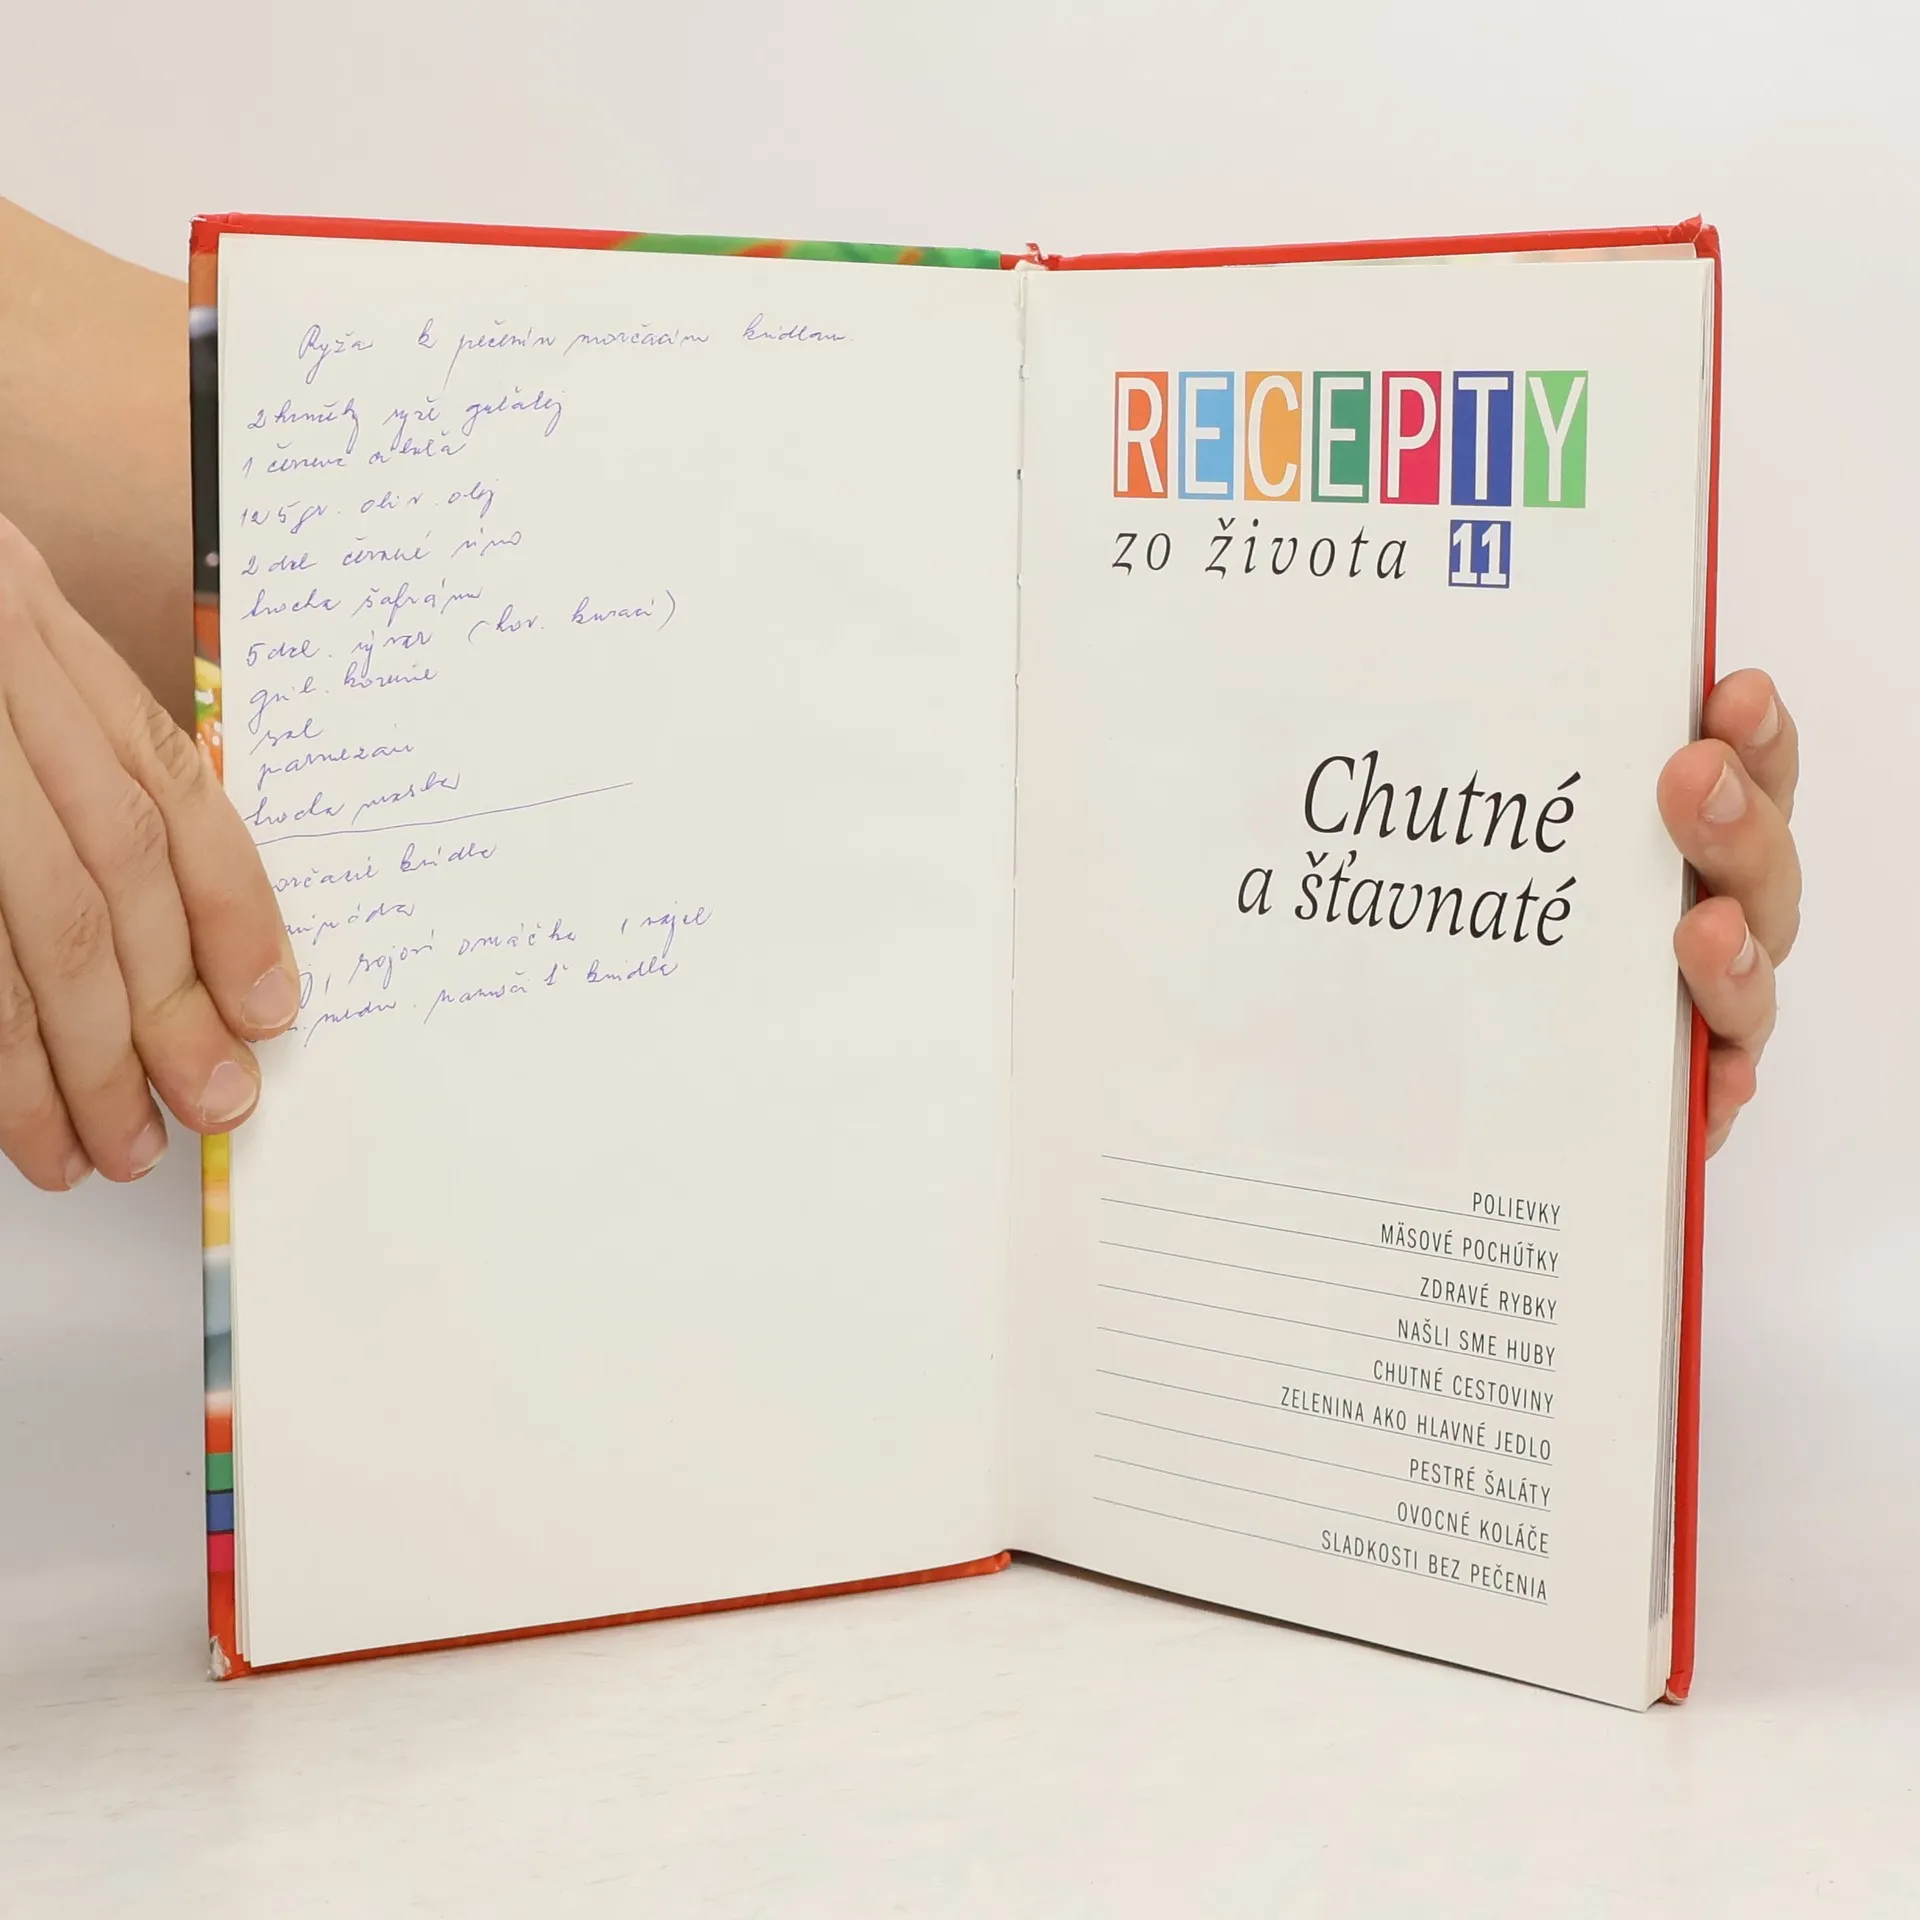 Ryža k pečeným morčacím krídlam
2 hrnčeky ryže guľatej
1 červená cibuľa
125 gr. oliv. olej
2 del červené víno
trocha šafránu
5 del. vývar (hov. kurací)
gril. korenie
soľ
parmezán
trocha masla
orčacie krídla
sojová omáčka 1
medu krídla
RECEPTY
zo života 11
Chutné
a šťavnaté
POLIEVKY
MÄSOVÉ POCHÚŤKY
ZDRAVÉ RYBKY
NAŠLI SME HUBY
CHUTNÉ CESTOVINY
ZELENINA AKO HLAVNÉ JEDLO
PESTRÉ ŠALÁTY
OVOCNÉ KOLÁČE
SLADKOSTI BEZ PEČENIA